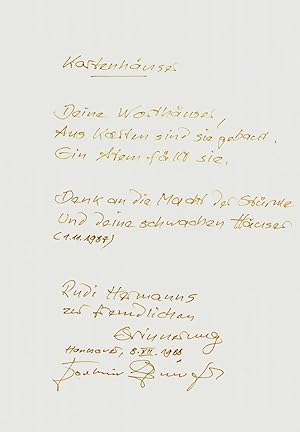 Kartenhäuser
Deine Worthäuser,
Aus Karten sind sie gebaut.
Ein Atem fällt sie.
Denk an die Macht der Stürme
Und deine schwachen Häuser
(1.11.1987)
Rudi Hermanns
zur freundlichen
Erinnerung
Hannover, 5.XII.1988